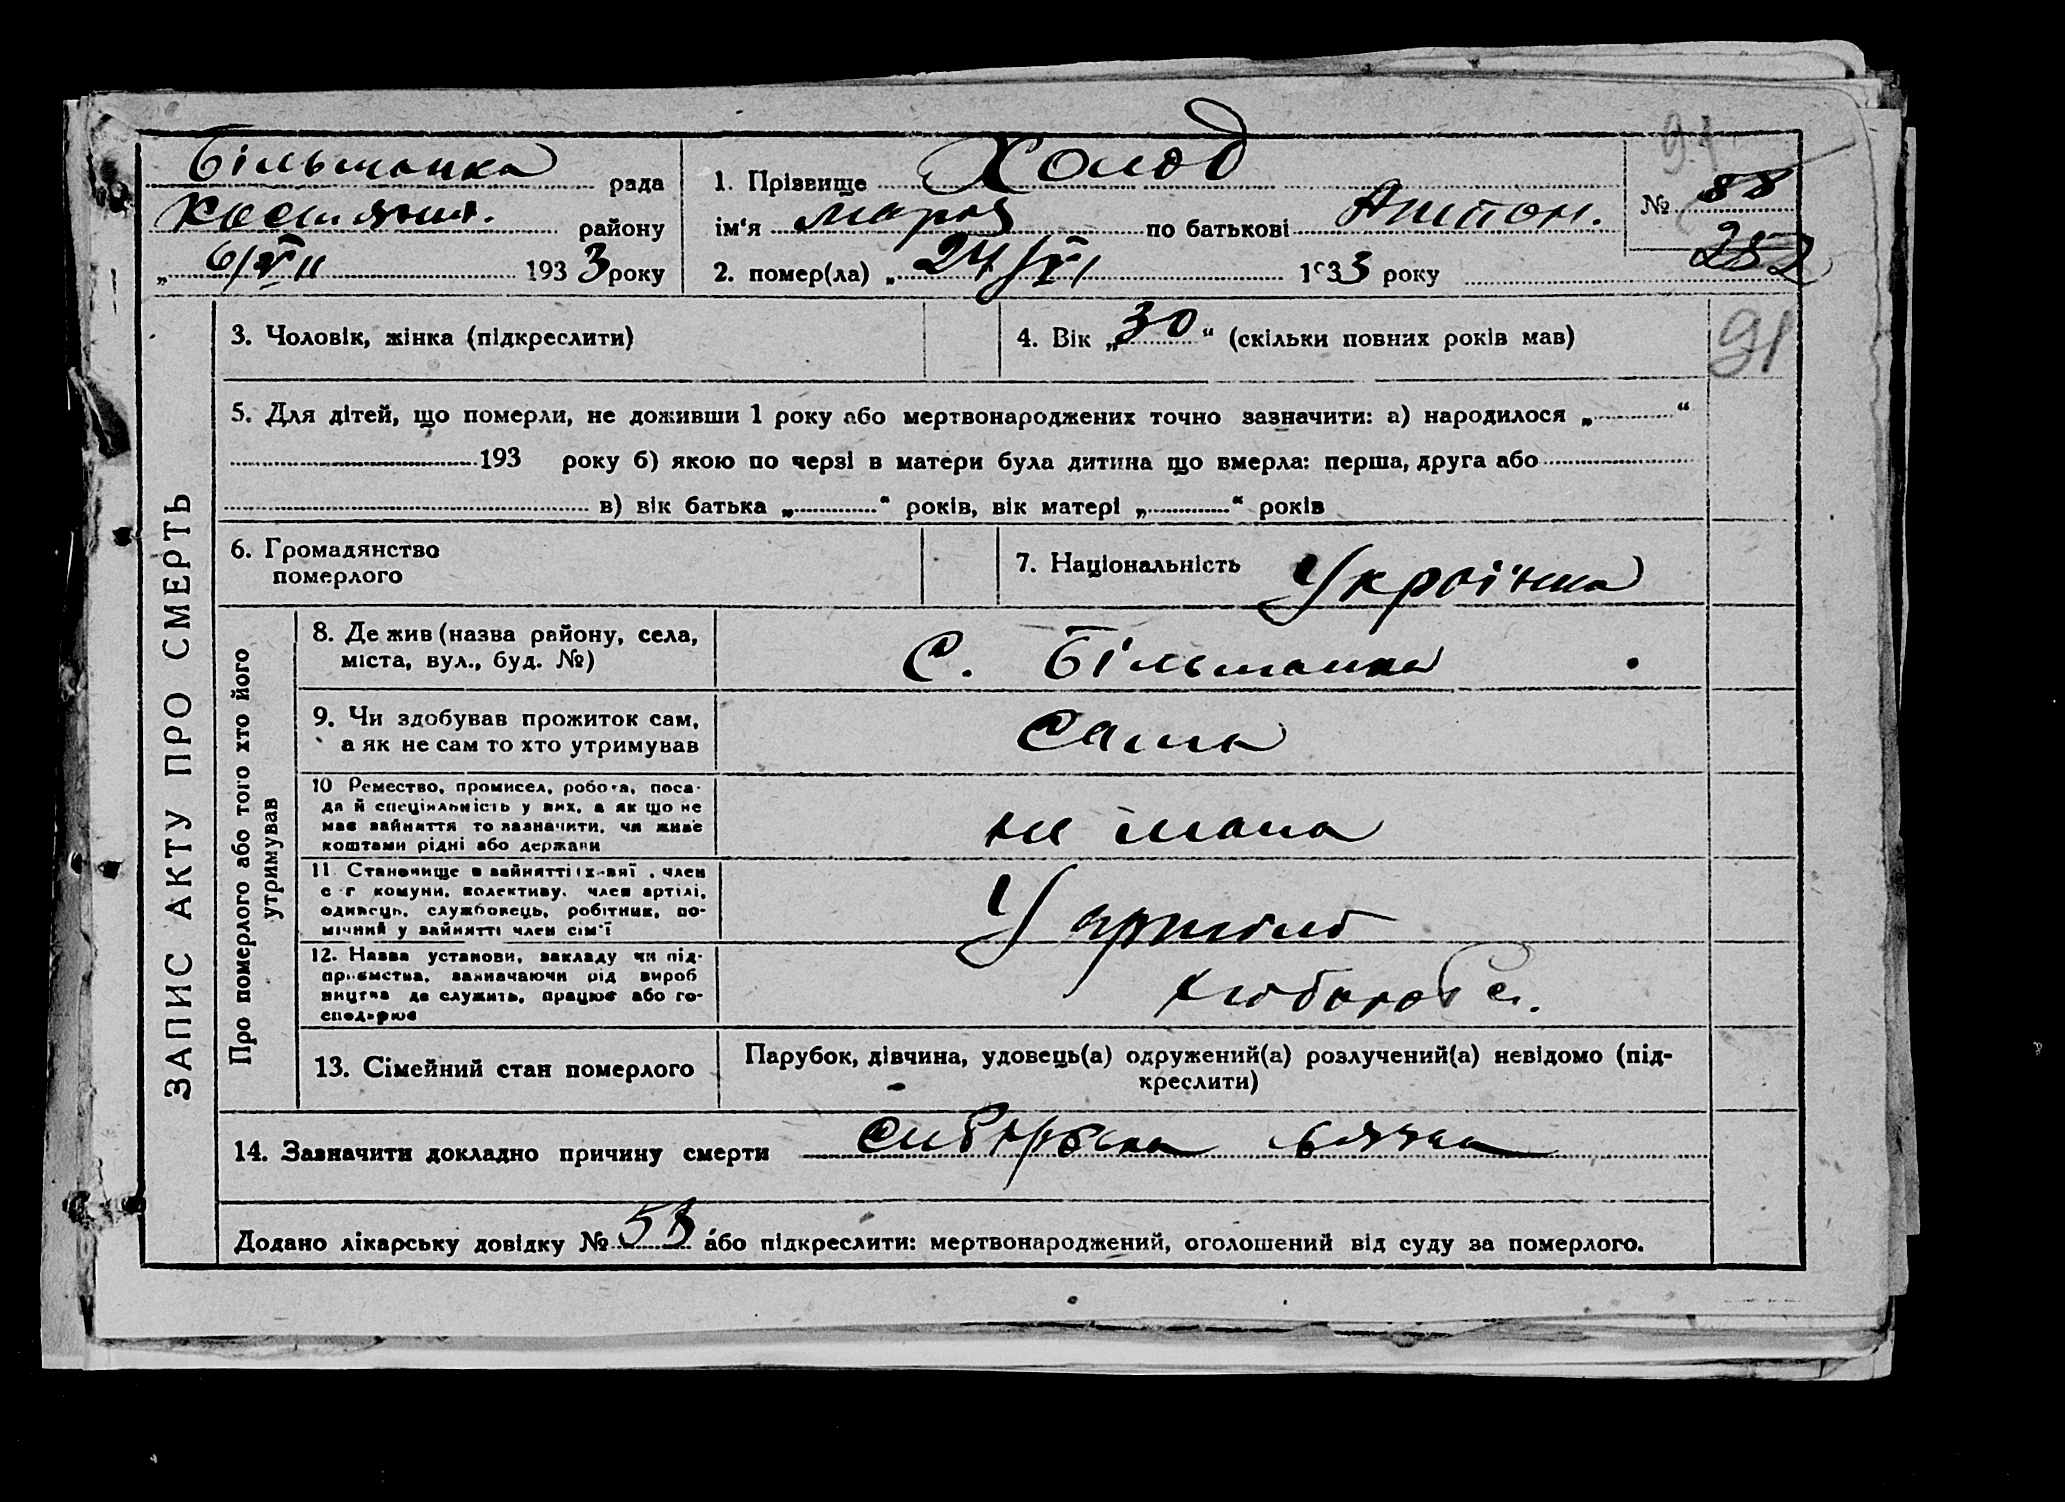 Більманка рада
району
„ 6/VII 1933 року
1. Прізвище Холод
ім‘я Марія по батькові Антон.
2. помер(ла) „ 24/VI 1933 року
91
№ 88
252
91
ЗАПИС АКТУ ПРО СМЕРТЬ
3. Чоловік, жінка (підкреслити)
4. Вік „30“ (скільки повних років мав)
5. Для дітей, що померли, не доживши 1 року або мертвонароджених точно зазначити: а) народилося „ “
193 року б) якою по черзі в матери була дитина що вмерла: перша, друга або
в) вік батька „ “ років, вік матері „ “ років
6. Громадянство
померлого
7. Національність Українка
Про померлого або того хто його
утримував
8. Де жив (назва району, села,
міста, вул., буд. №)
С. Більманка
9. Чи здобував прожиток сам,
а як не сам то хто утримував
сама
10 Ремество, промисел, робота, поса-
да й спеціяльність у них, а як що не
має зайняття то зазначити, чи живе
коштами рідні або держави
не мала
11. Становище в зайнятті , член
с-г комуни, колективу, член артілі,
одинець, службовець, робітник, по-
мічний у зайнятті член сім‘ї
У артілі
12. Назва установи, закладу чи під-
приємства, зазначаючи рід вироб
ництва де служить, працює або го-
сподарює
хлібороб с.
13. Сімейний стан померлого
Парубок, дівчина, удовець(а) одружений(а) розлучений(а) невідомо (під-
креслити)
14. Зазначити докладно причину смерти
Додано лікарську довідку № 53 або підкреслити: мертвонароджений, оголошений від суду за померлого.